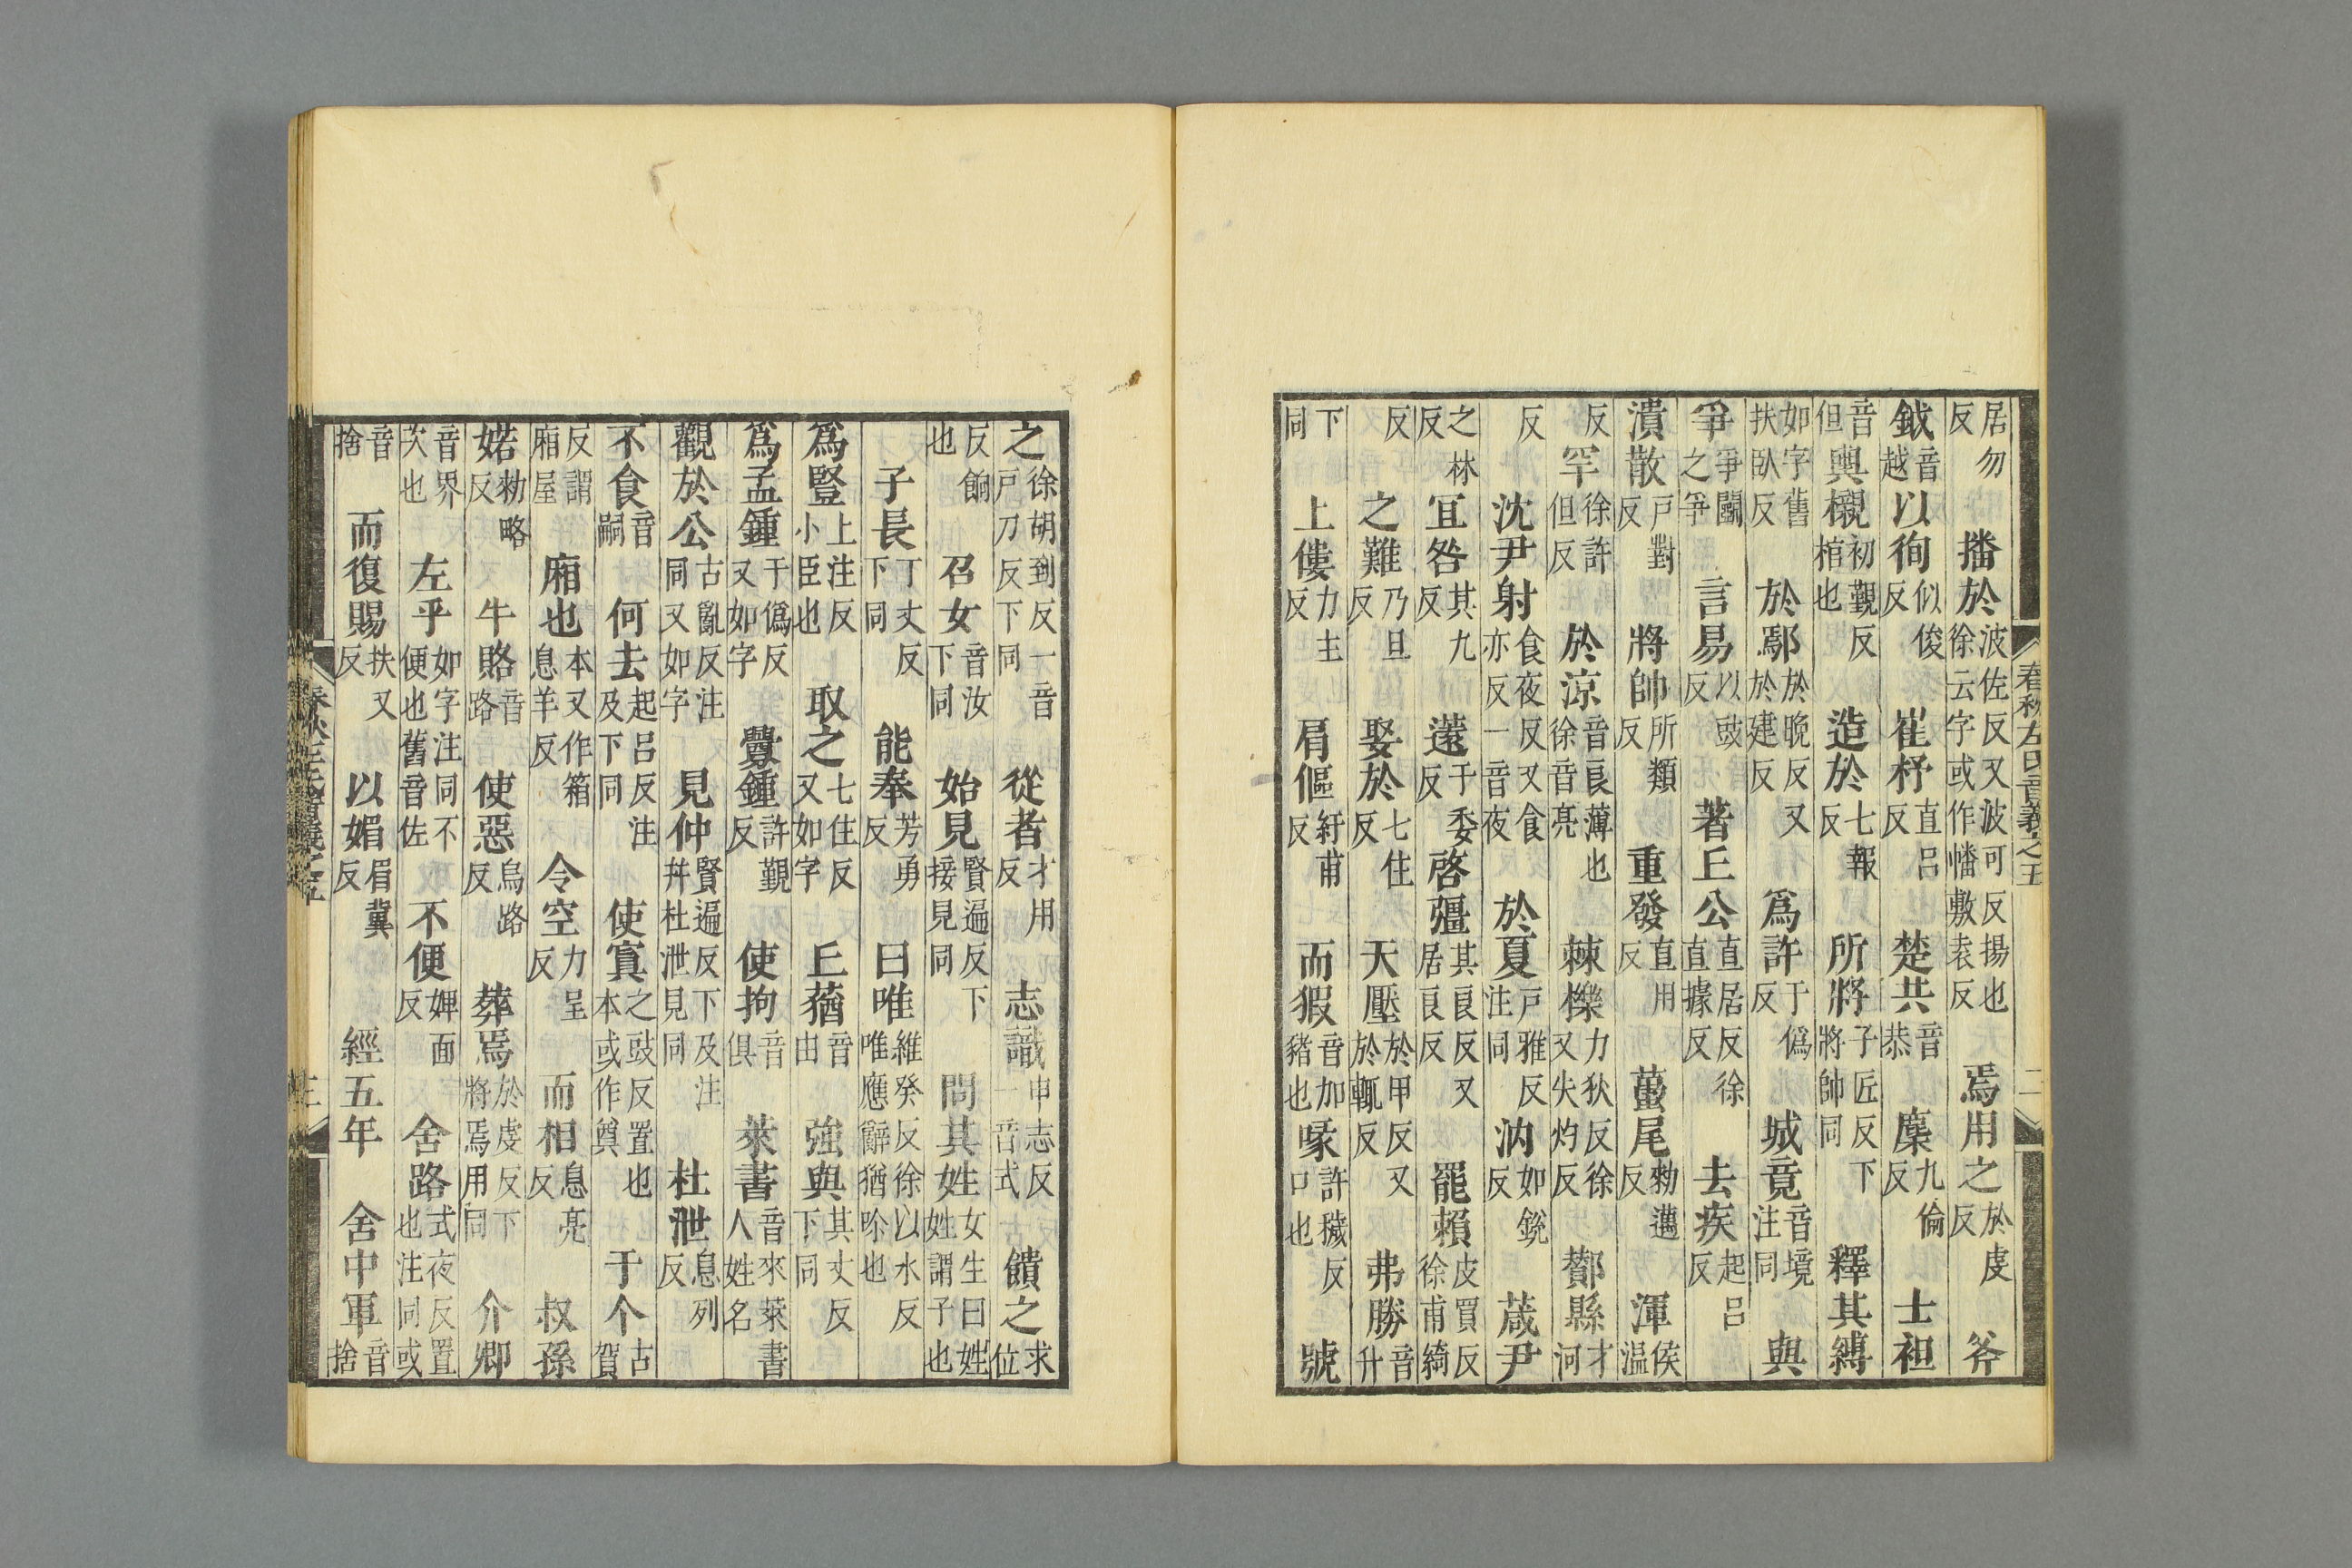 居勿反播於波佐反又波可反揚也徐云字或作幡敷袁反焉用之於虔反斧
鉞音越以徇似俊反崔杼直吕反楚共音恭麇九倫反士袒
音但輿櫬初覲反棺也造於七報反所將子匠反下將帥同釋其縛
如字舊扶臥反於鄢於晚反又於建反爲許于僞反城竟音境注同與
爭爭鬬之爭言易以豉反著丘公直居反徐直據反去疾起吕反
潰散戶對反將帥所類反重發直用反蠆尾勑邁反渾侯温
反罕徐許但反於涼音良薄也徐音亮棘櫟力狄反徐又失灼反酇縣才河
反沈尹射食夜反又食亦反一音夜於夏戶雅反注同汭如銳反葴尹
之林反宜咎其九反薳于委反啓彊其良反又居良反罷賴皮買反徐甫綺
反之難乃旦反娶於七住反天壓於甲反又於輒反弗勝音升
下同上僂力主反肩傴紆甫反而猳音加豬也喙許穢反口也號
春秋左氏音義之五 二
之徐胡到反一音戶刀反下同從者才用反志識申志反一音式饋之求位
反餉也召女音汝下同始見賢遍反下接見同問其姓女生曰姓姓謂子也
子長丁丈反下同能奉芳勇反曰唯維癸反徐以水反唯應辭猶㕥也
爲豎上注反小臣也取之七住反又如字丘蕕音由強與其丈反下同
爲孟鍾于僞反又如字釁鍾許覲反使拘音俱萊書音來萊書人姓名
觀於公古亂反注同又如字見仲賢遍反下及注并杜泄見同杜泄息列反
不食音嗣何去起吕反注及下同使寘之豉反置也本或作奠于个古賀
反謂廂屋廂也本又作箱息羊反令空力呈反而相息亮反叔孫
婼勑略反牛賂音路使惡烏路反葬焉於虔反下將焉用同介卿
音界次也左乎如字注同不便也舊音佐不便婢面反舍路式夜反置也注同或
音捨而復賜扶又反以媚眉冀反經五年舍中軍音捨
春秋左氏音義之五